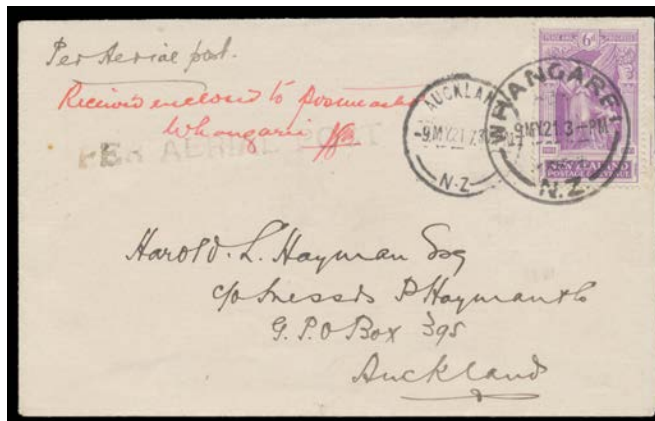 Per Aerial post.
Received enclosed to postmaster
Whangarei
PER AERIAL POST
AUCKLAND
-9MY21 7.3
N.Z
WHANGAREI
9MY21 3-PM
N.Z.
PEACE AND PROGRESS
6D
NEW ZEALAND
POSTAGE & REVENUE
Harold. L. Hayman Esq
c/o Messrs P Hayman & Co
G.P.O Box 395
Auckland